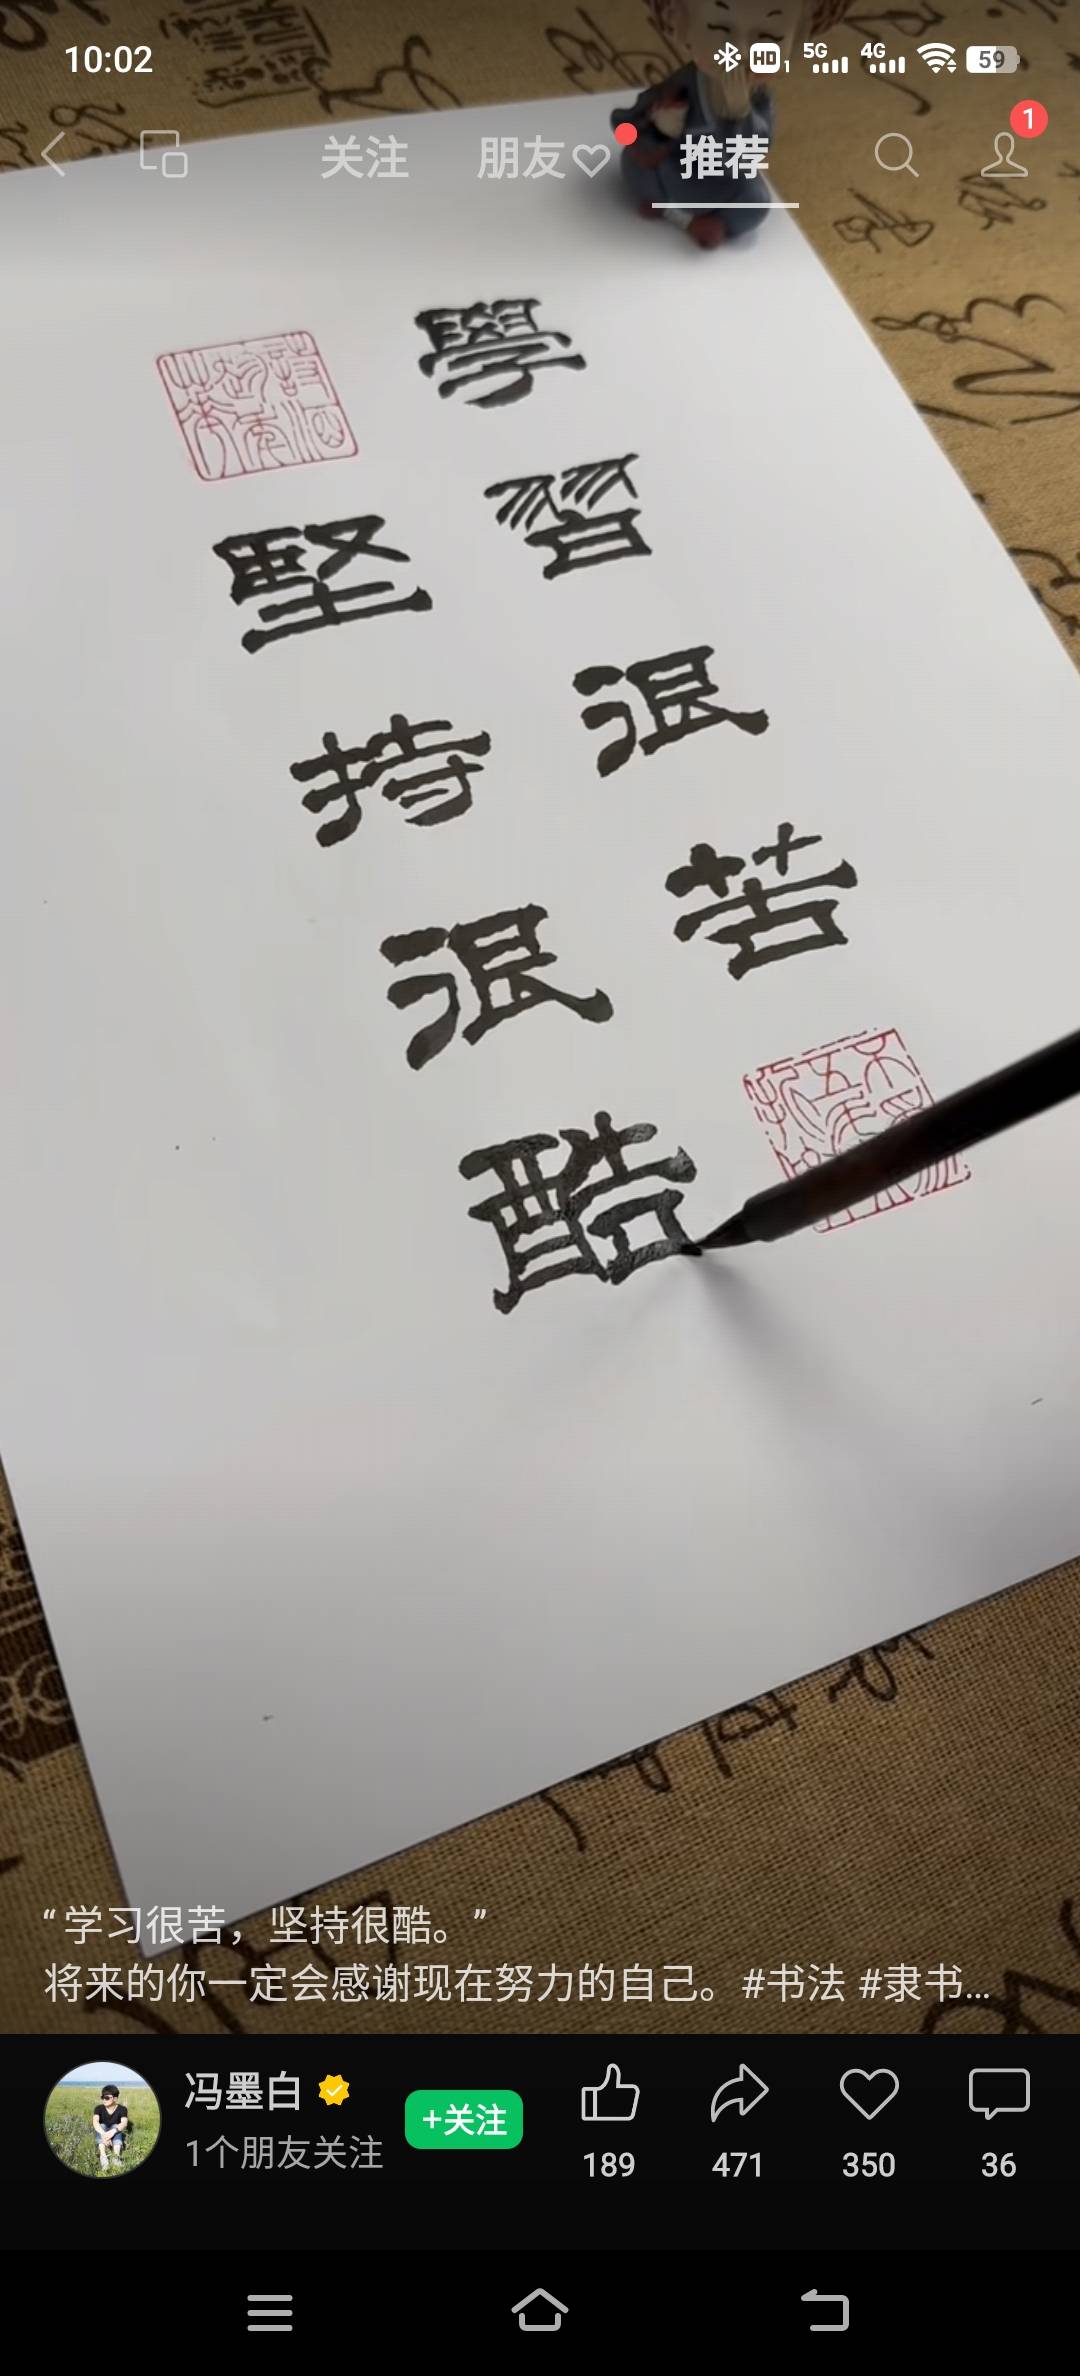 10:02
HD 1 5G 4G 59
关注 朋友 推荐 1
學習很苦
堅持很酷
“学习很苦，坚持很酷。”
将来的你一定会感谢现在努力的自己。#书法 #隶书...
冯墨白
1个朋友关注
+关注
189 471 350 36